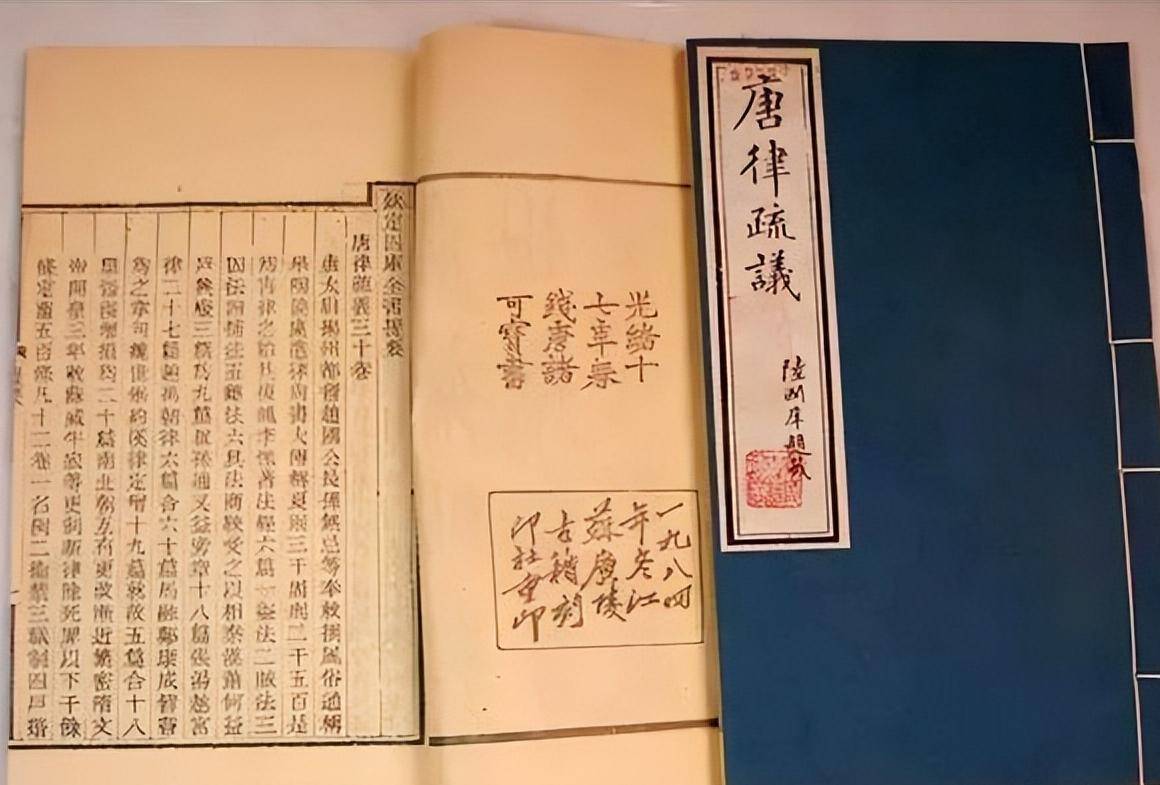 唐律疏議
陸潤庠題
光緒十
七年
錢唐諸
可寶署
一九八四
年冬江
蘇廣陵
古籍刻
印社重印
欽定四庫全書提要
唐律疏義三十卷
唐太尉揚州都督趙國公長孫無忌等奉敕撰風俗通稱
皋陶謨虞造律尚書大傳稱夏刑三千周刑二千五百是
為言律之始其後魏李悝著法經六篇一盜法二賊法三
囚法四捕法五雜法六具法商鞅受之以相秦漢蕭何益
戶興廄三篇為九篇叔孫通又益旁章十八篇張湯越宮
律二十七篇趙禹朝律六篇合六十篇馬融鄭康成皆嘗
為之章句魏世刪約漢律定增十九篇就故五篇合十八
篇晉復增損為二十篇南北朝互有更改漸近繁密隋文
帝開皇三年敕蘇威牛弘等更制新律除死罪以下千餘
條定留五百條凡十二卷一名例二衛禁三職制四戶婚